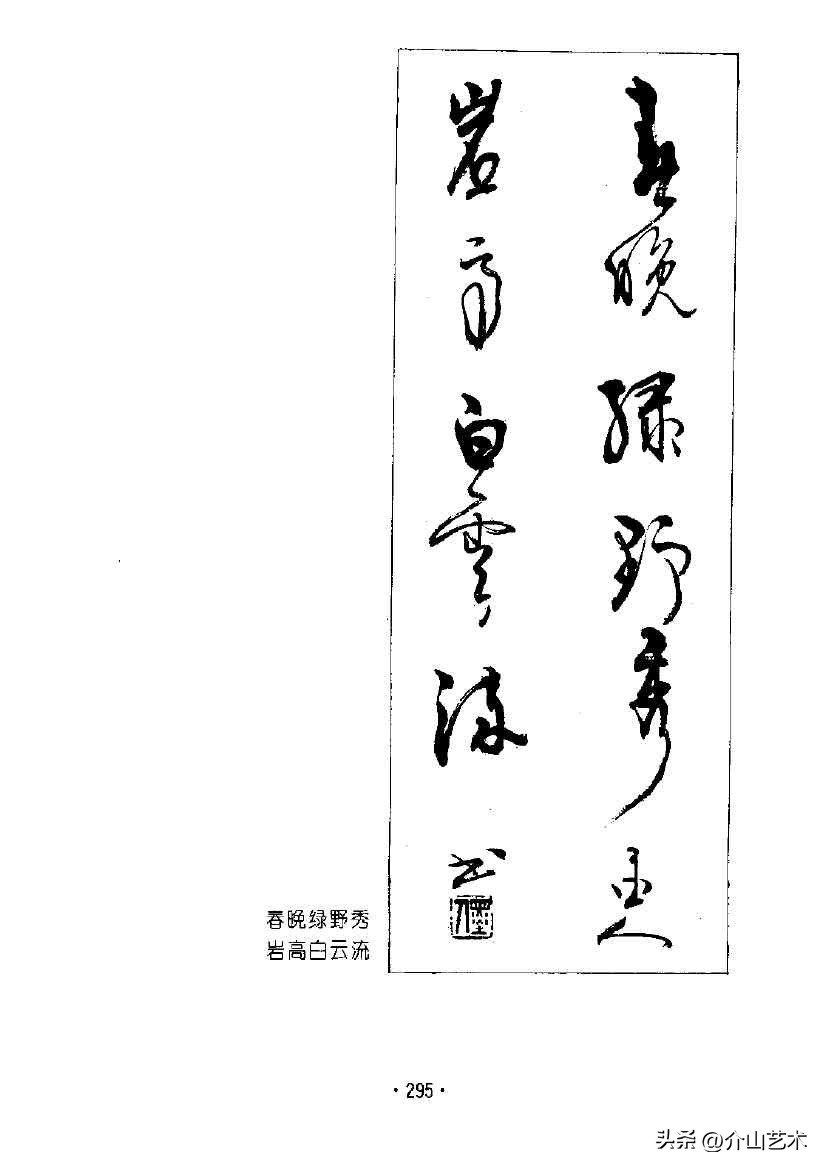 春晚绿野秀墨人
岩高白雲流
书
墨人
春晚绿野秀
岩高白云流
·295·
头条@介山艺术